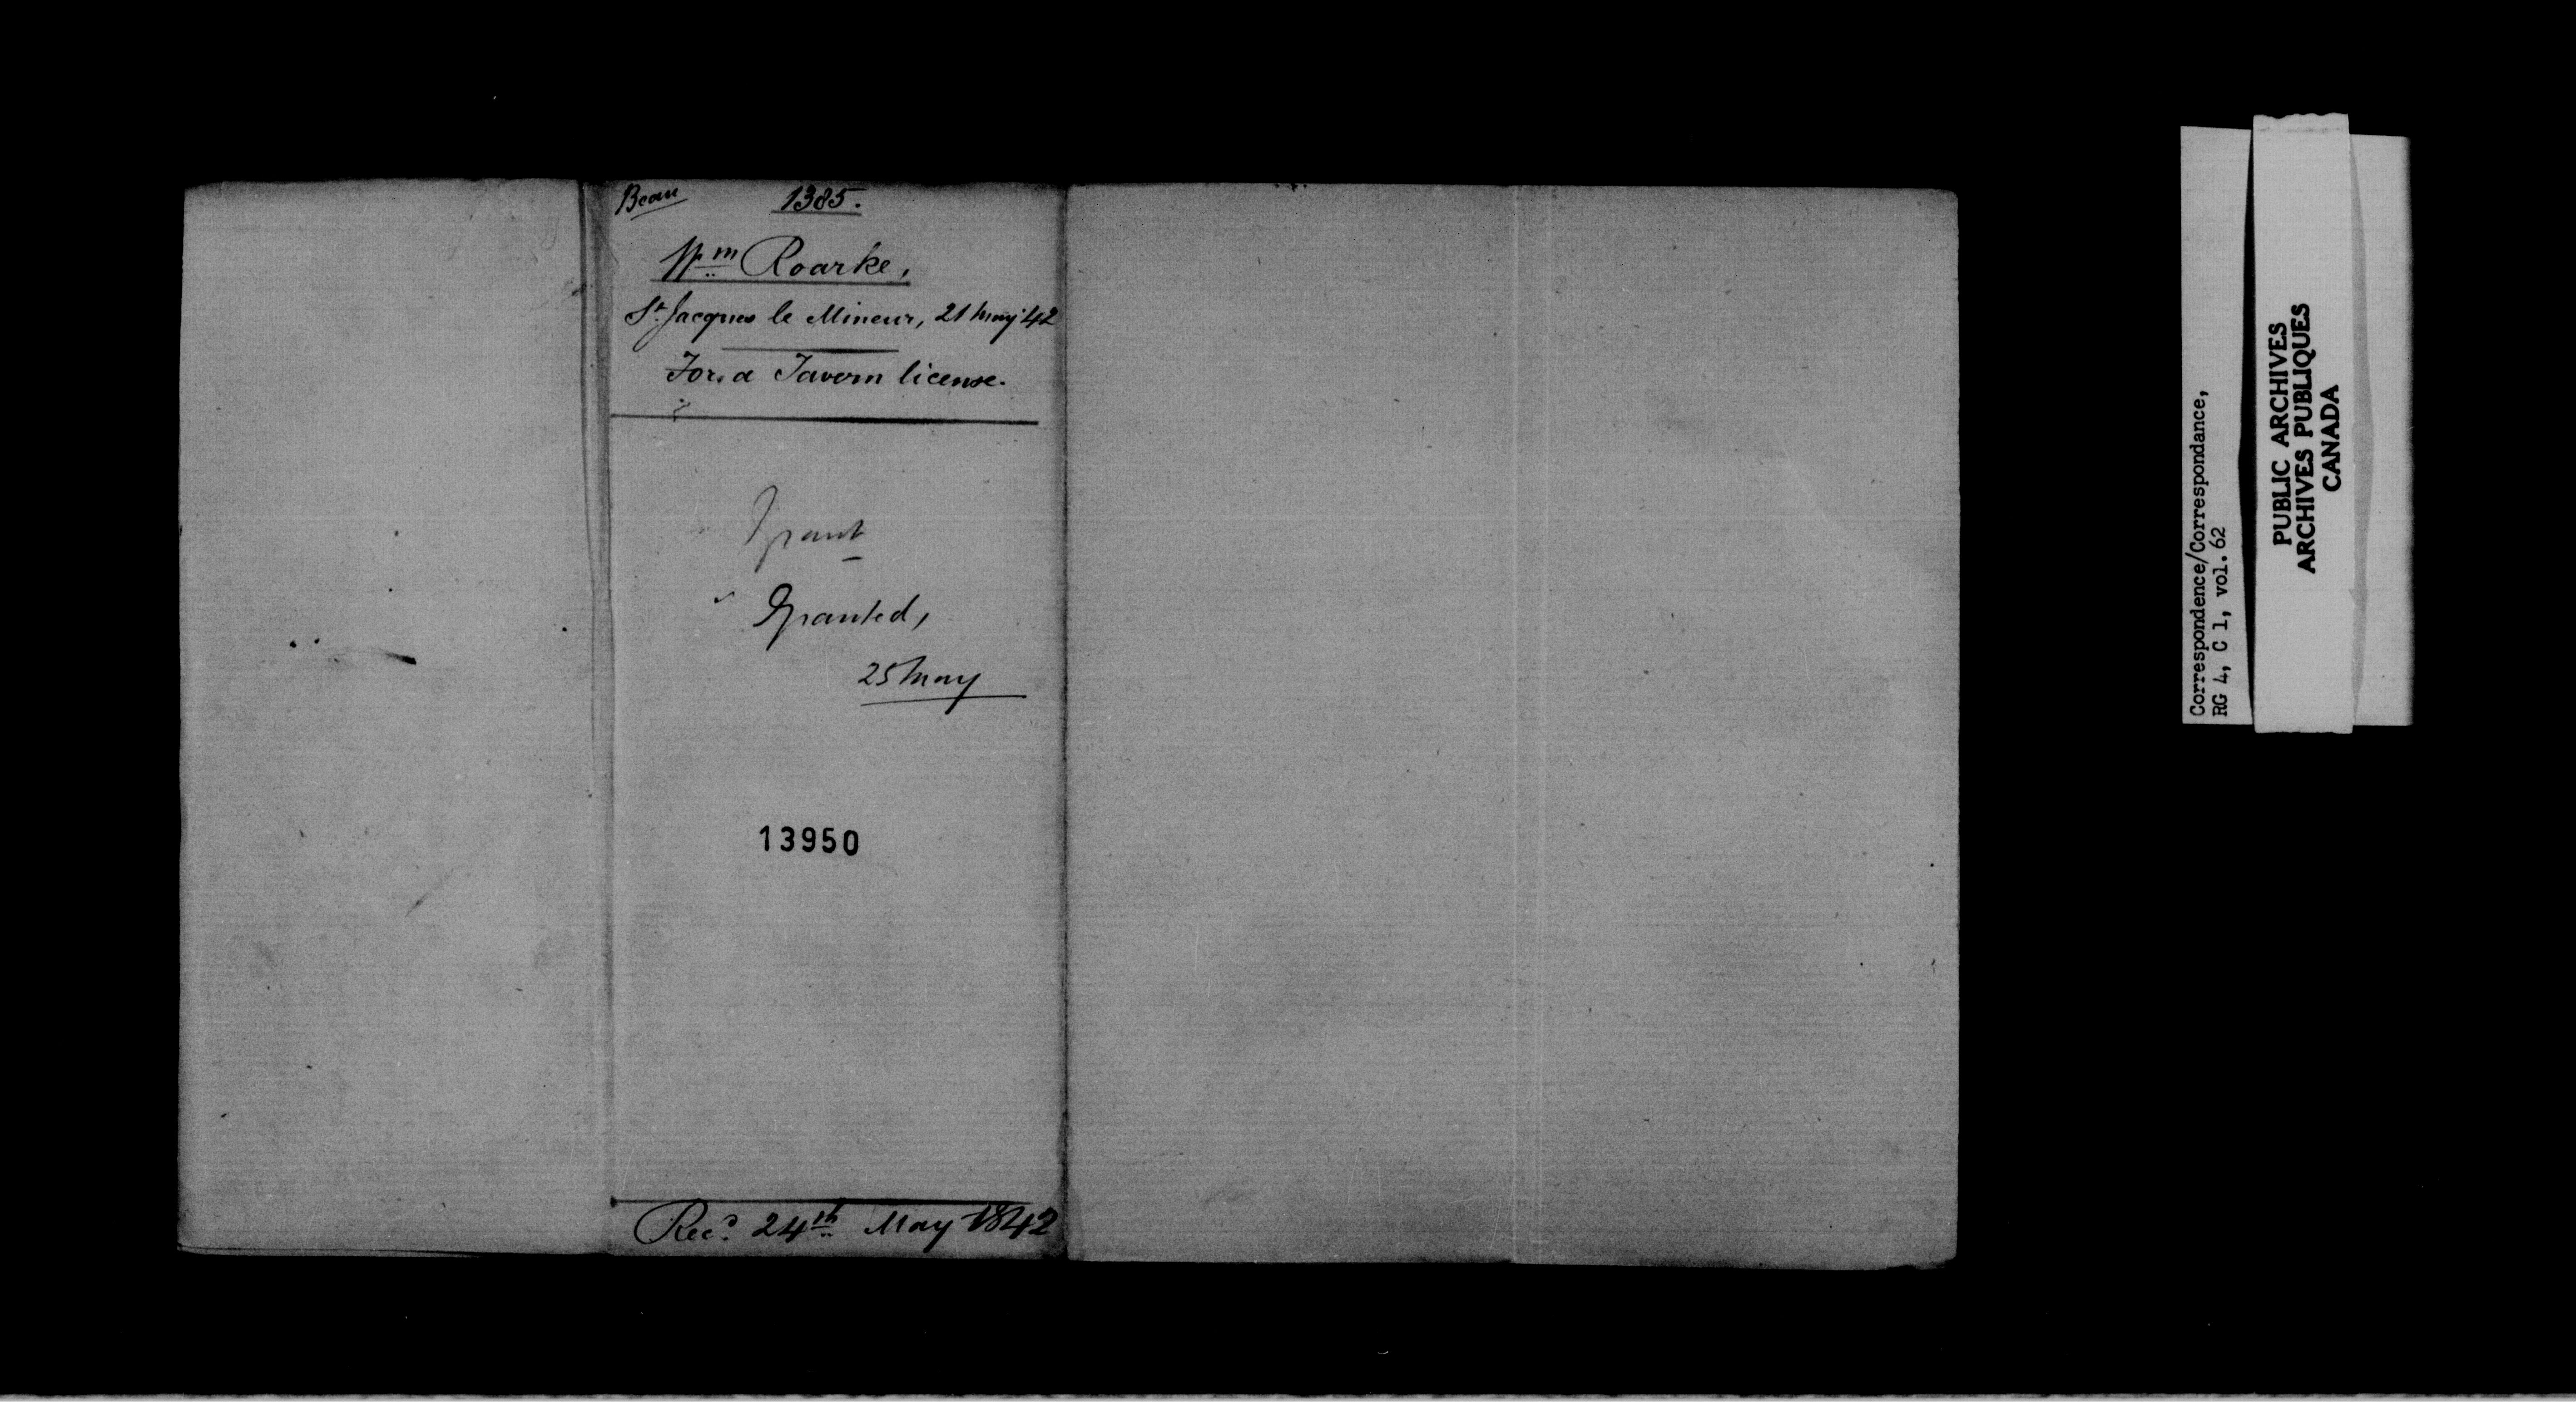 Beau
1385.
Wm Roarke,
St. Jacques le Mineur, 21 May '42
For a Tavern license.
Grant
Granted,
25 May
13950
Recd. 24th May 1842
Correspondence/Correspondance,
RG 4, C 1, vol. 62
PUBLIC ARCHIVES
ARCHIVES PUBLIQUES
CANADA